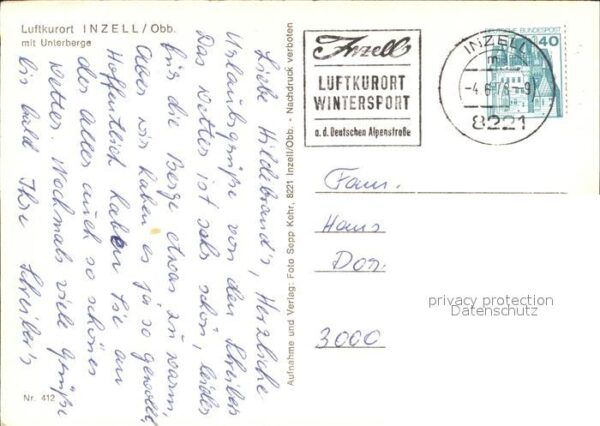 Luftkurort INZELL/Obb.
mit Unterberge
Liebe Hildebrand's, Herzliche
Urlaubsgrüße von den Schreibers
Das Wetter ist sehr schön, leider
für die Berge etwas zu warm,
Aber wir haben es ja so gewollt,
Hoffentlich haben Sie an
der Aller auch so schönes
Wetter. Nochmals viele Grüße
bis bald Ihre Schreiber's
Nr. 412
Aufnahme und Verlag: Foto Sepp Kehr, 8221 Inzell/Obb. · Nachdruck verboten
Inzell
LUFTKURORT
WINTERSPORT
a. d. Deutschen Alpenstraße
INZELL
8221
DEUTSCHE BUNDESPOST
40
Fam.
Hans
Dor.
3000
privacy protection
Datenschutz